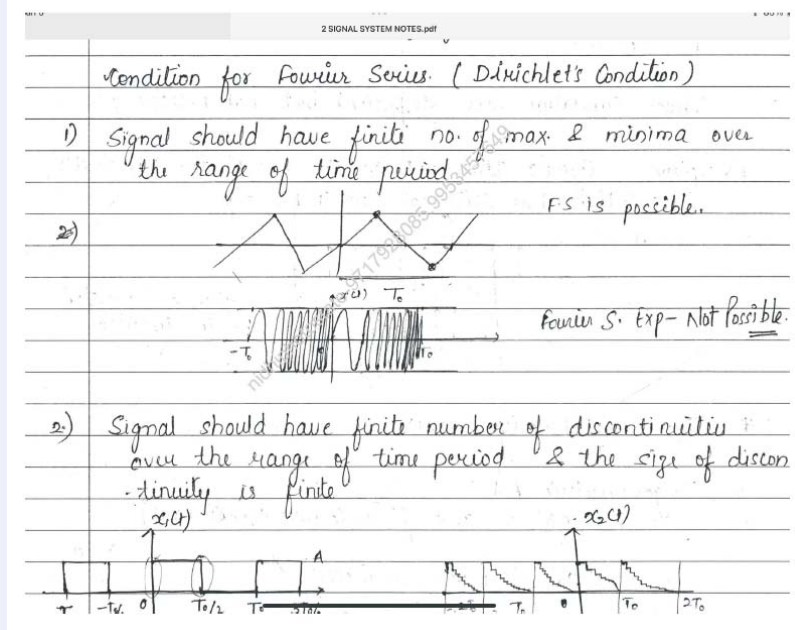 2 SIGNAL SYSTEM NOTES.pdf
Condition for Fourier Series. ( Dirichlet's Condition )
1) Signal should have finite no. of max. & minima over
the range of time period
F.S is possible..
2)
x(t) T₀
Fourier S. Exp - Not Possible.
-T₀ T₀
2.) Signal should have finite number of discontinuities
over the range of time period & the size of discon
-tinuity is finite
x₁(t) x₂(t)
A
0 T₀/2 T₀ 0 T₀ 2T₀